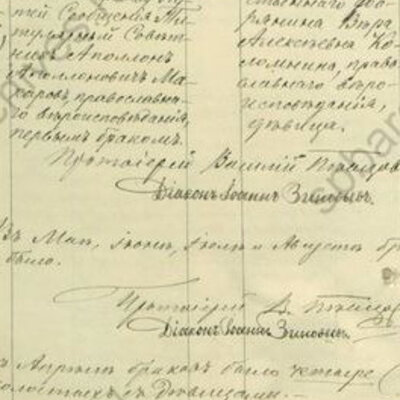 тей Сообщенія Ти-
тулярный Совѣт-
никъ Аполлонъ
Аполлоновичъ Ма-
каровъ, православна-
го вѣроисповѣданія,
первымъ бракомъ.
рянина Вѣра
Алексѣевна Ко-
ломнина, право-
славнаго вѣро-
исповѣданія,
дѣвица.
Протоіерей Василій
Діаконъ Іоаннъ Зиновьевъ.
Въ Маѣ, Іюнѣ, Іюлѣ и Августѣ бра
было.
Протоіерей В.
Діаконъ Іоаннъ Зиновьевъ.
Апрѣлѣ браковъ было четыре (
холостыхъ съ дѣвицами.